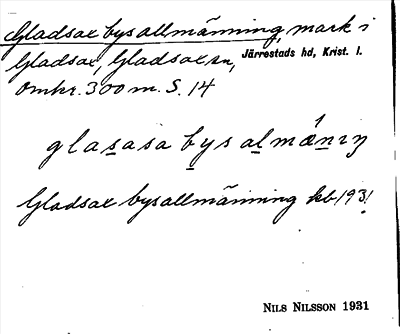 Gladsax bysallmänning, mark i
Gladsax, Gladsax sn, Järrestads hd, Krist. l.
Omkr. 300 m. S. 14
glasasa bys almæ̂nıŋ
Gladsax bysallmänning kb 1931
NILS NILSSON 1931